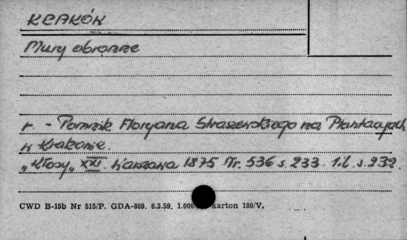 KRAKÓW
Mury obronne
r. - Pomnik Floryana Straszewskiego na Plantacyach
w Krakowie.
„Kłosy" XXI. Warszawa 1875 Nr. 536 s. 233. il. s. 232.
CWD B-15b Nr 515/P. GDA-809. 6.3.59. 1.000 karton 180/V.